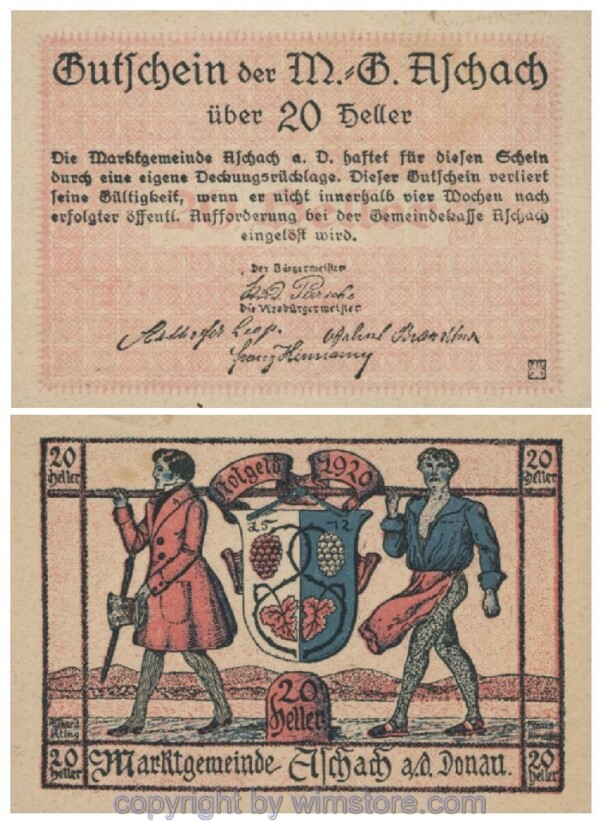 Gutschein der M.-G. Aschach
über 20 Heller
Die Marktgemeinde Aschach a. D. haftet für diesen Schein
durch eine eigene Deckungsrücklage. Dieser Gutschein verliert
seine Gültigkeit, wenn er nicht innerhalb vier Wochen nach
erfolgter öffentl. Aufforderung bei der Gemeindekasse Aschach
eingelöst wird.
Der Bürgermeister
Die Vizebürgermeister
Leop.
Franz
20 Heller
Notgeld 1920
20 Heller
25 12
20
Heller
20 Heller
Marktgemeinde Aschach a/d. Donau.
20 Heller
copyright by wimstore.com